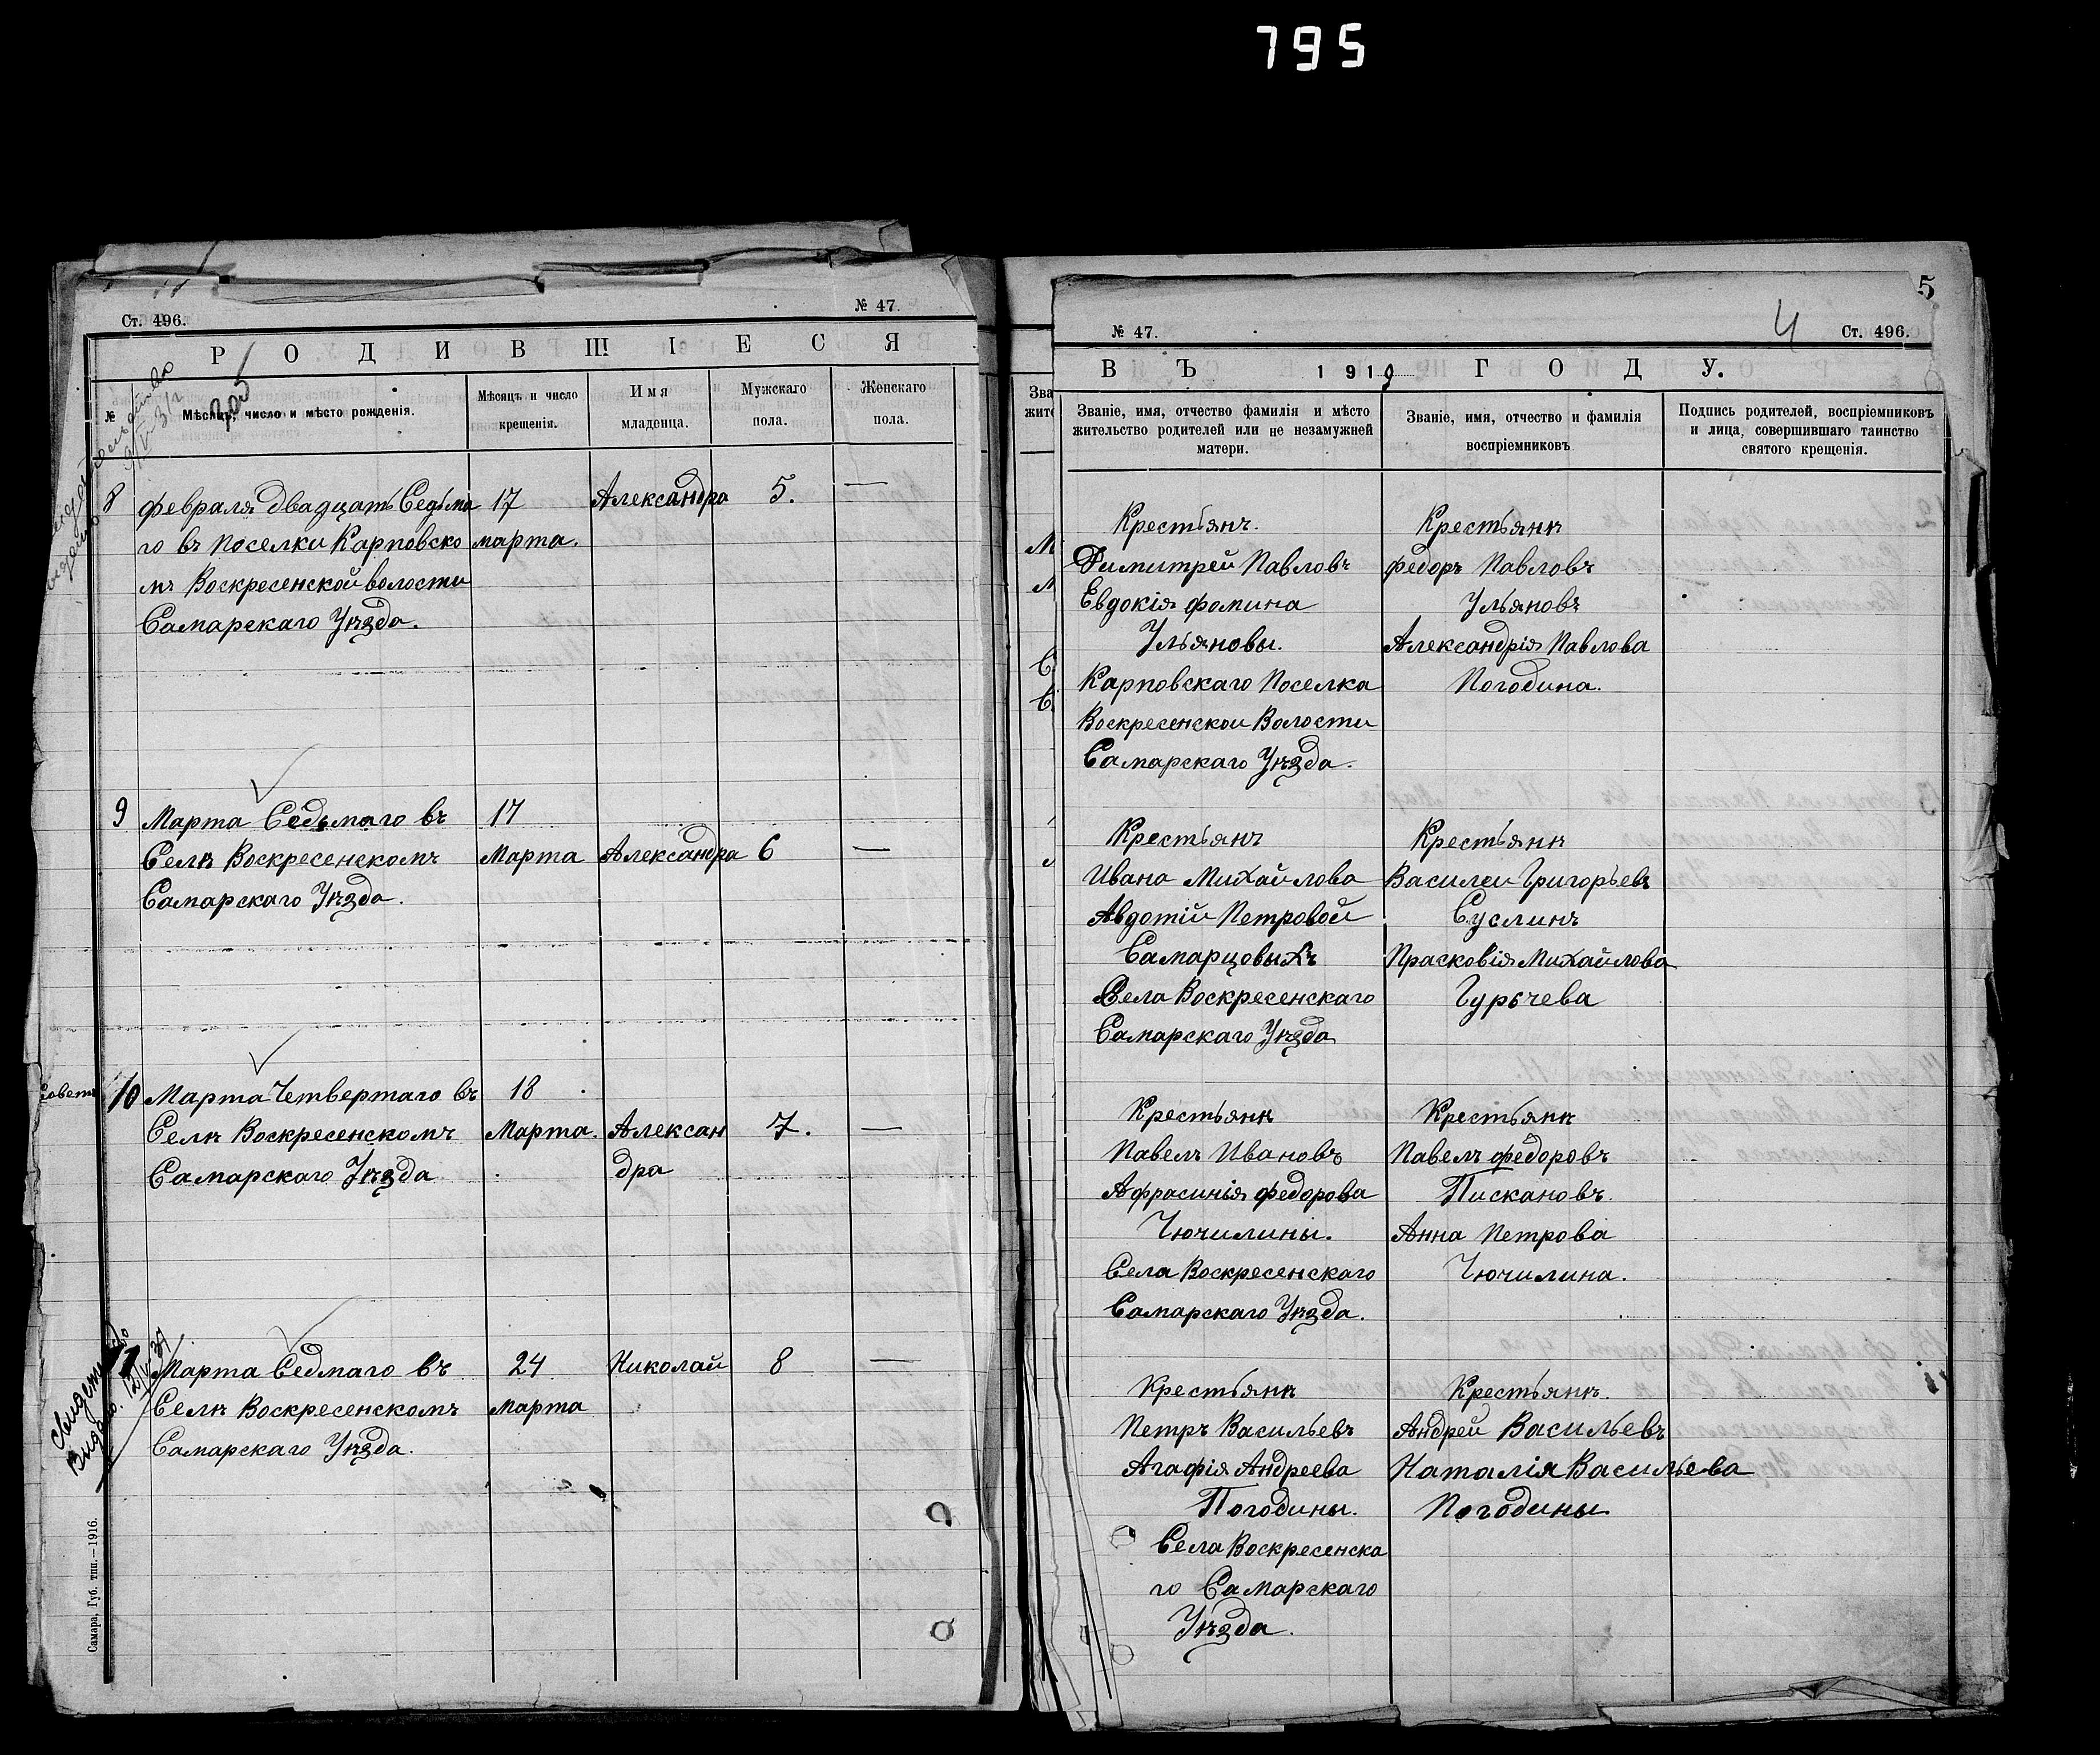 795
Ст. 496.
№ 47.
РОДИВШІЕСЯ
№
Мѣсяцъ, число и мѣсто рожденія.
Мѣсяцъ и число
крещенія.
Имя
младенца.
Мужскаго
пола.
Женскаго
пола.
8 февраля двадцать Седьма 17 Александра 5. —
го въ поселки Карповско марта.
мъ Воскресенской волости
Самарскаго Уѣзда.
9 Марта Седьмаго въ 17
Селѣ Воскресенскомъ Марта Александра 6 —
Самарскаго Уѣзда.
10 Марта Четвертаго въ 18
Селѣ Воскресенскомъ Марта. Алексан 7. —
Самарскаго Уѣзда дра
11 Марта Седмаго въ 24 Николай 8 —
Селѣ Воскресенскомъ Марта
Самарскаго Уѣзда.
Самара, Губ. тип.—1916.
5
4
№ 47.
Ст. 496.
ВЪ 1919 ГОДУ.
Званіе, имя, отчество фамилія и мѣсто
жительство родителей или не незамужней
матери.
Званіе, имя, отчество и фамилія
воспріемниковъ
Подпись родителей, воспріемниковъ
и лица, совершившаго таинство
святого крещенія.
Крестьянъ. Крестьянѣ
Димитрей Павловъ федоръ Павловъ
Евдокія фомина Ульяновъ
Ульяновы. Александрія Павлова
Карповскаго Поселка Погодина.
Воскресенскои Волости
Самарскаго Уѣзда.
Крестьянъ Крестьянѣ
Ивана Михайлова Василеи Григорьевъ
Авдотій Петровой Суслинъ
Самарцовыхъ Прасковія Михайлова
Села Воскресенскаго Гурьчева
Самарскаго Уѣзда
Крестьянѣ Крестьянѣ
Павелъ Ивановъ Павелъ федоровъ
Афрасинія федорова Пискановъ.
Чючилины. Анна Петрова
Села Воскресенскаго Чючилина.
Самарскаго Уѣзда.
Крестьянѣ Крестьянѣ.
Петръ Васильевъ Андрей Васильевъ
Агафія Андреева Наталія Васильева
Погодины. Погодины
Села Воскресенска
го Самарскаго
Уѣзда.